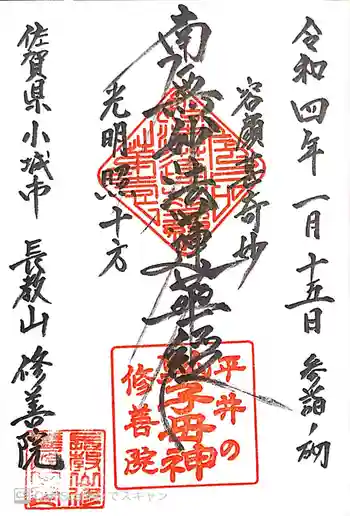 令和四年一月十五日 参詣ノ砌
容顔甚奇妙
南無妙法蓮華経
光明照十方
佐賀県小城市 長教山 修善院
平井の
鬼子母神
修善院
でスキャン